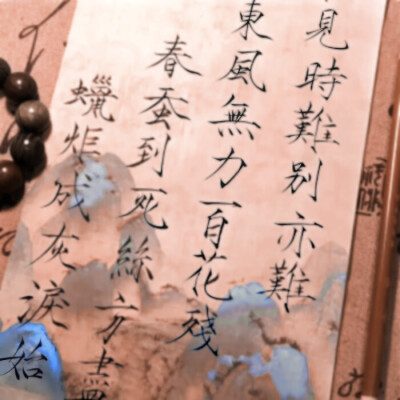 見時難別亦難
東風無力百花殘
春蚕到死絲方盡
蠟炬成灰淚始